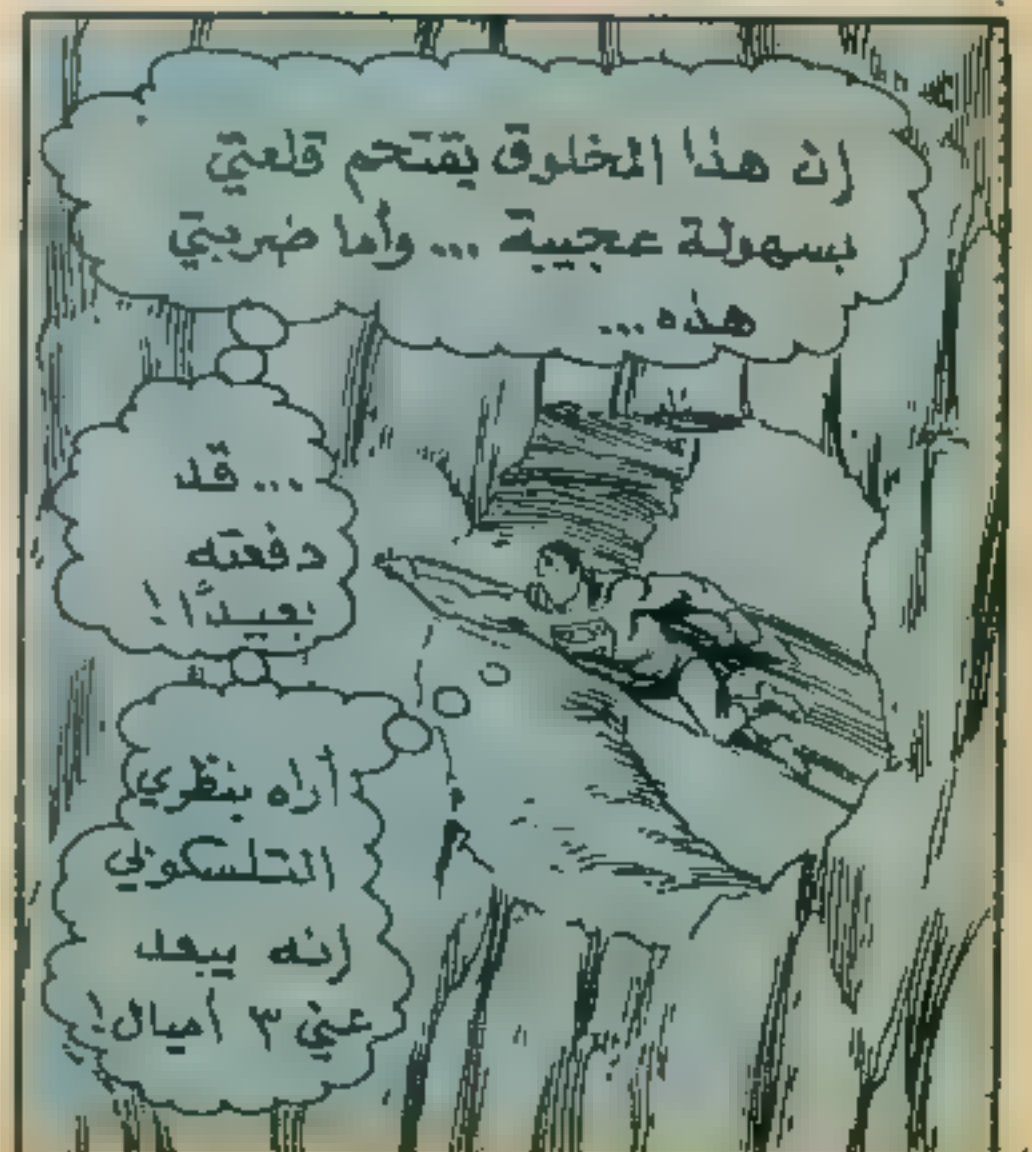 إن هذا المخلوق يقتحم قلعتي
بسهولة عجيبة ... وأما ضربتي
هذه ...
... قد
دفعته
بعيدًا!
أراه بنظري
التلسكوبي
إنه يبعد
عني ٣ أميال!